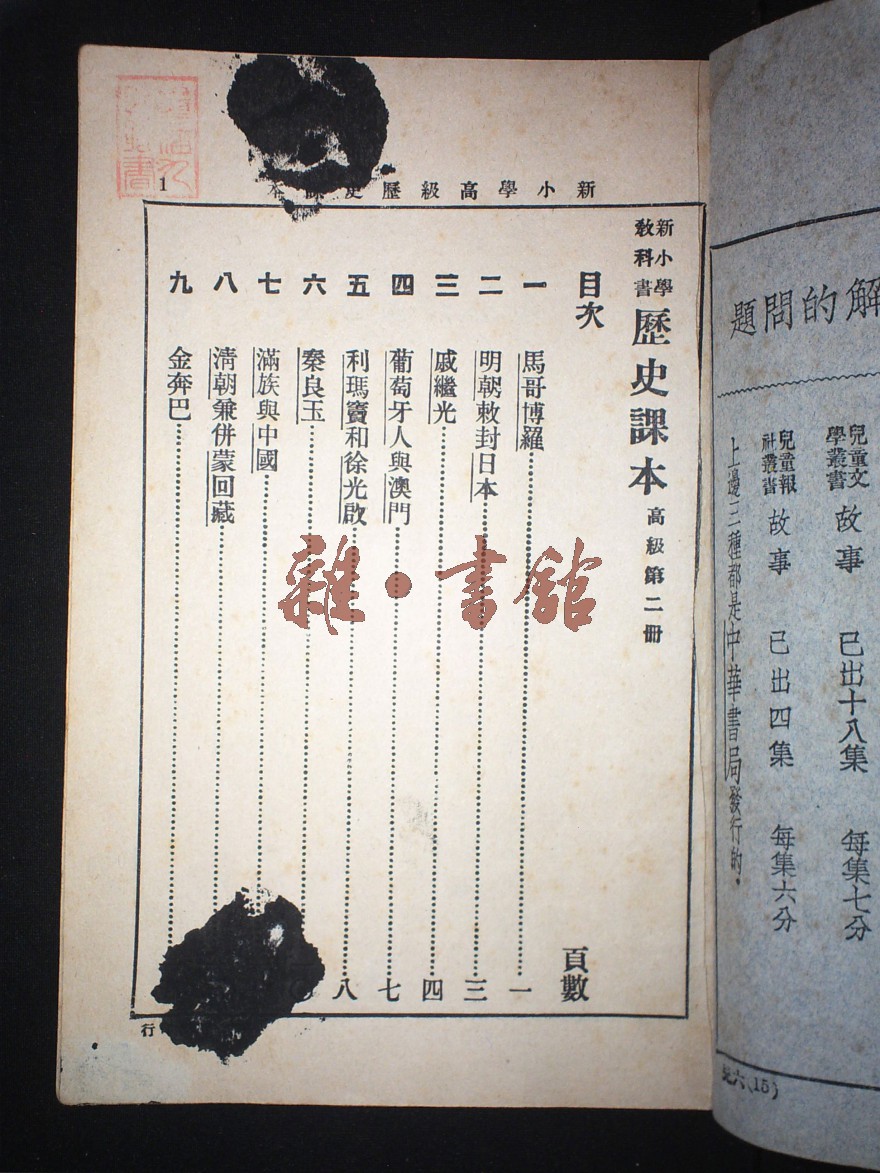 新小學高級歷史課本
1
新小學
教科書
歷史課本 高級第二冊
目次 頁數
一 馬哥博羅 一
二 明朝敕封日本 三
三 戚繼光 四
四 葡萄牙人與澳門 七
五 利瑪竇和徐光啟 八
六 秦良玉
七 滿族與中國
八 清朝兼併蒙回藏
九 金奔巴
行
雜·書館
解的問題
兒童文
學叢書 故事 已出十八集 每集七分
兒童報
社叢書 故事 已出四集 每集六分
上邊三種都是中華書局發行的.
(15)